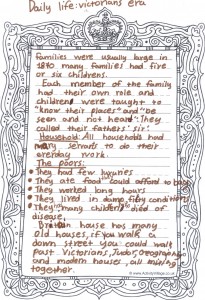 Daily life: victorians era
families were usually large in
1870 many families had five
or six childrens.
Each member of the family
had their own role and
children were taught to
"know their places" and "be
seen and not heard". They
called their fathers' sir'.
Household: All households had
many servants to do their
everday work.
The poors:
They had few luxuries
They ate food could afford to buy
They worked long hours
They lived in damp, filthy conditions
They many children died of
disease,
Britain house has many
old houses, if you walk a
down street you could walk
past Victorians, Tudor, Georgians
and modern houses all mixing
together.